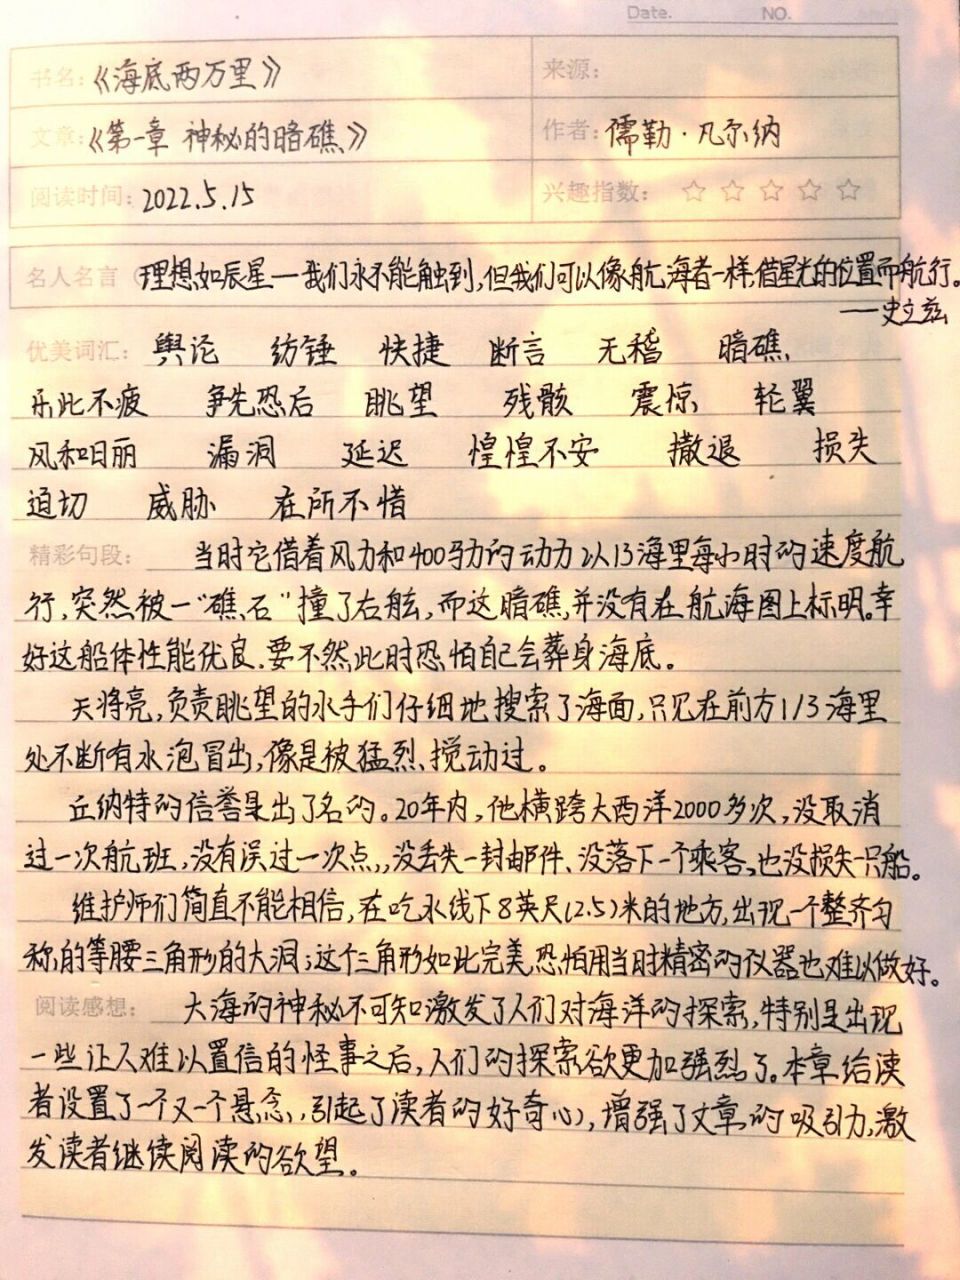 Date. NO.
书名:《海底两万里》 来源:
文章:《第一章 神秘的暗礁》 作者:儒勒·凡尔纳
阅读时间:2022.5.15 兴趣指数:☆☆☆☆☆
名人名言 理想如辰星—我们永不能触到,但我们可以像航海者一样,借星光的位置而航行。
——史立兹
优美词汇: 舆论 纺锤 快捷 断言 无稽 暗礁
乐此不疲 争先恐后 眺望 残骸 震惊 轮翼
风和日丽 漏洞 延迟 惶惶不安 撤退 损失
迫切 威胁 在所不惜
精彩句段: 当时它借着风力和400马力的动力以13海里每小时的速度航
行,突然被一“礁石”撞了右舷,而这暗礁,并没有在航海图上标明。幸
好这船体性能优良.要不然此时恐怕自己会葬身海底。
天将亮,负责眺望的水手们仔细地搜索了海面,只见在前方1/3海里
处不断有水泡冒出,像是被猛烈搅动过。
丘纳特的信誉是出了名的。20年内,他横跨大西洋2000多次,没取消
过一次航班,没有误过一次点,没丢失一封邮件、没落下一个乘客,也没损失一只船。
维护师们简直不能相信,在吃水线下8英尺(2.5)米的地方,出现一个整齐匀
称的等腰三角形的大洞;这个三角形如此完美,恐怕用当时精密的仪器也难以做好。
阅读感想: 大海的神秘不可知激发了人们对海洋的探索,特别是出现
一些让人难以置信的怪事之后,人们的探索欲更加强烈了。本章给读
者设置了一个又一个悬念,引起了读者的好奇心,增强了文章的吸引力,激
发读者继续阅读的欲望。